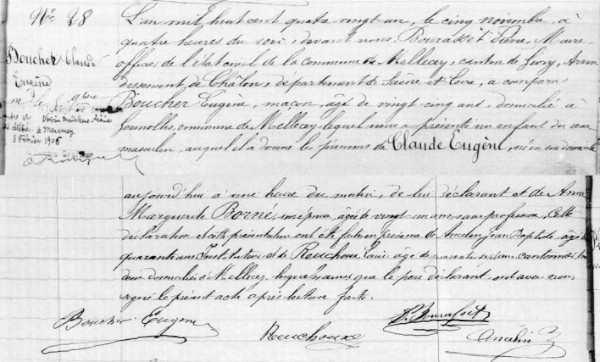 No 28
Boucher Claude
Eugène
à Mercurey
Février 1906
L'an mil huit cent quatre vingt un, le cinq novembre, à
quatre heures du soir, devant nous, Pierre, Maire,
officier de l'état civil de la commune de Mellecey, canton de Givry, Arron
dissement de Châlon, département de Saône et Loire, a comparu
Boucher Eugène, maçon, âgé de vingt cinq ans, domicilié à
Germolles, commune de Mellecey, lequel nous a présenté un enfant du sexe
masculin, auquel il a donné les prénoms de Claude Eugène, né en son domicile
aujourd'hui à une heure du matin, de lui déclarant et de Anne
Marguerite Borne, son épouse, âgée de vingt un ans sans profession, Cette
déclaration et cette présentation ont été faites en présence de Ancelin Jean Baptiste, âgé de
quarante ans Instituteur et de Reuchoux Louis âgé de ans, cantonnier, tous
deux domiciliés à Mellecey, lesquels ainsi que le père déclarant, ont avec nous
signé le présent acte après lecture faite.
Boucher Eugène
Reuchoux
Ancelin